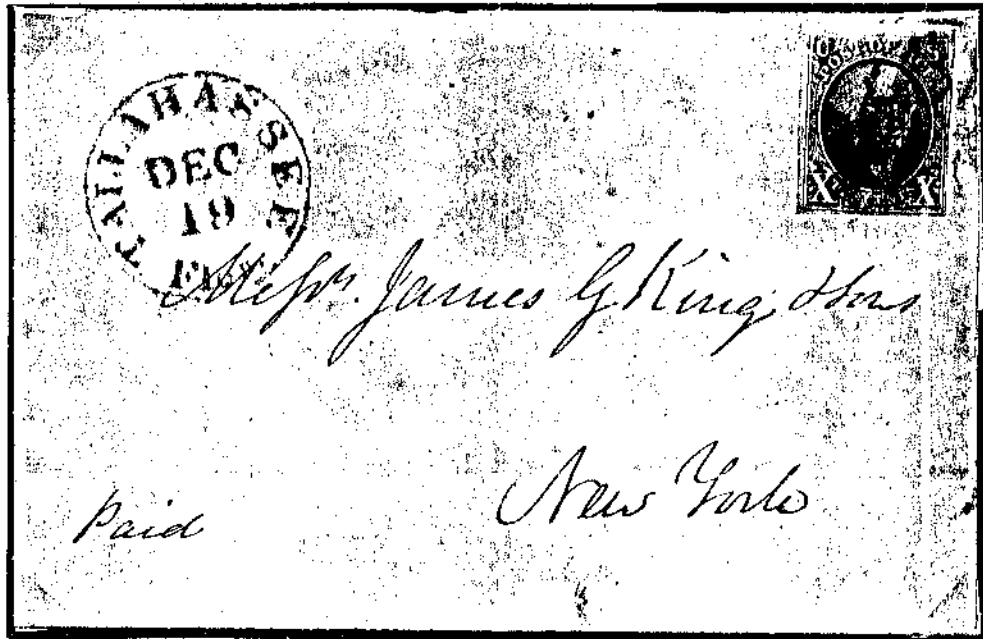 TALLAHASSEE
DEC
19
POST OFFICE
X X
Messrs. James G King & Sons
New York
Paid